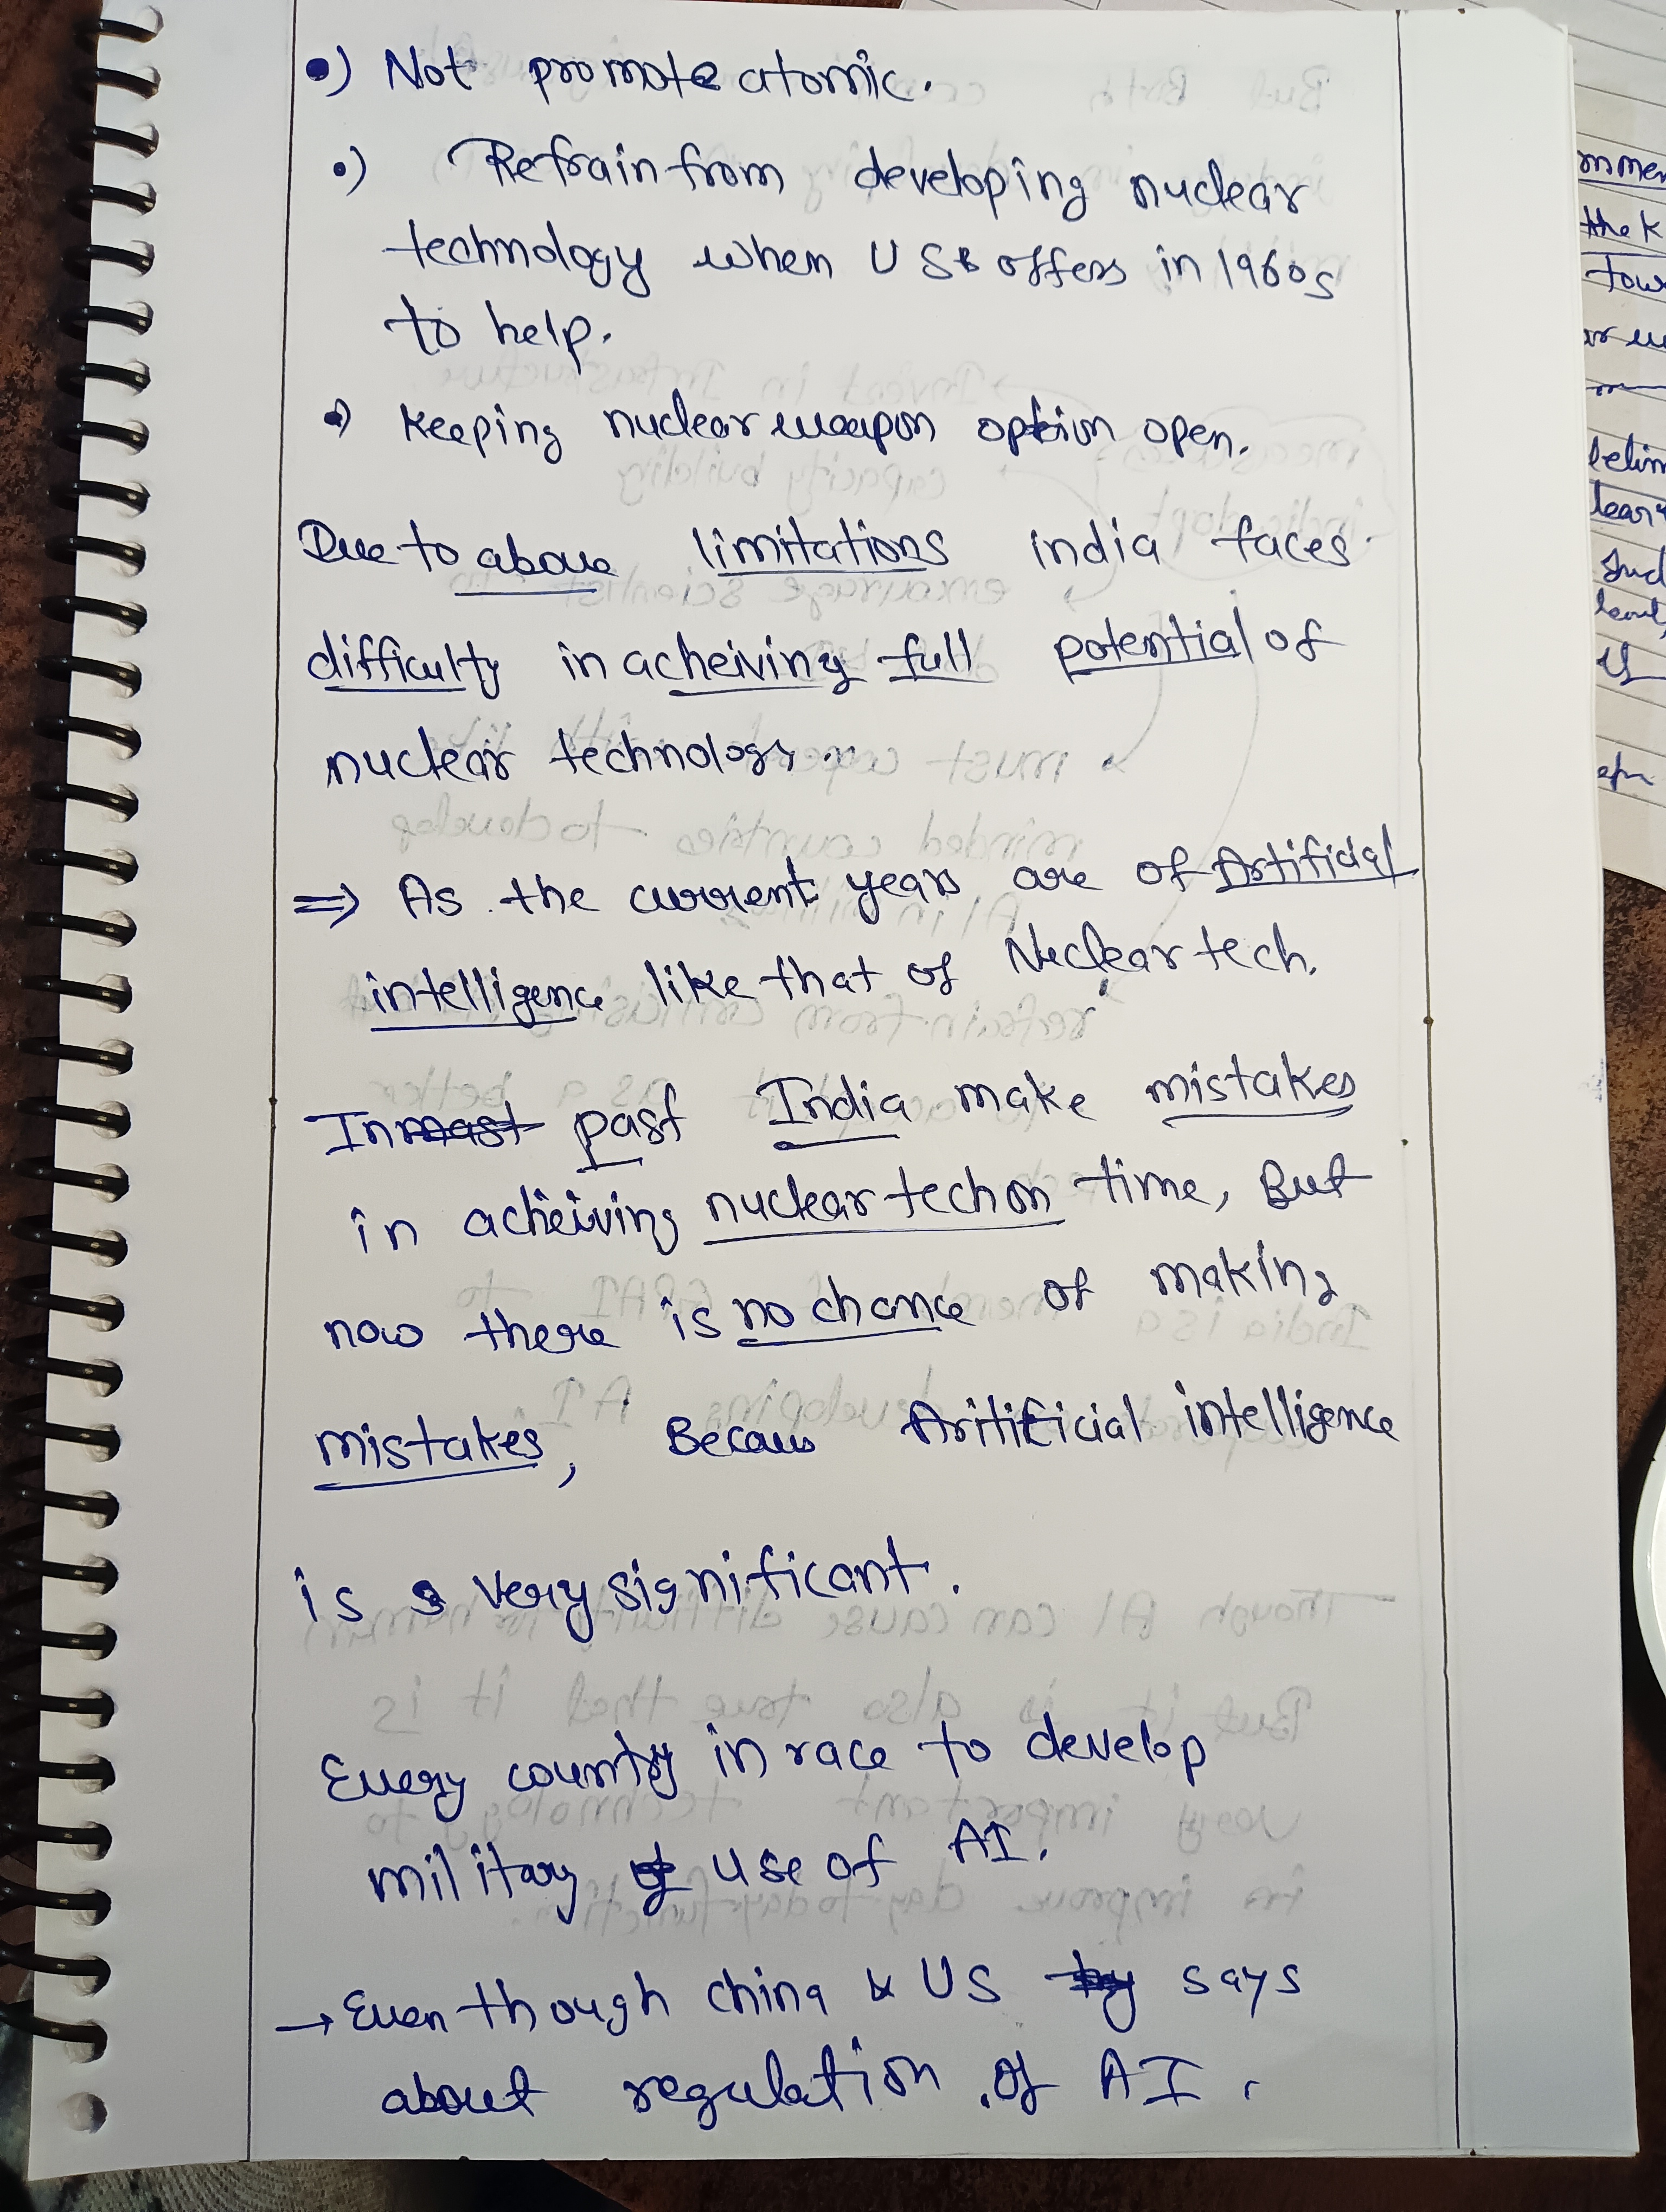 •) Not promote atomic.
•) Refrain from developing nuclear
technology when US offers in 1960s
to help.
•) Keeping nuclear weapon option open.
Due to above limitations india faces
difficulty in acheiving full potential of
nuclear technology.
⇒ As the current years are of Artificial
intelligence like that of Nuclear tech.
In mast past India make mistakes
in acheiving nuclear tech on time, But
now there is no chance of making
mistakes, Becaus Aritificial intelligence
is very significant.
Every country in race to develop
military use of AI.
→ Even though china & US by says
about regulation of AI.
mmen
the K
tow